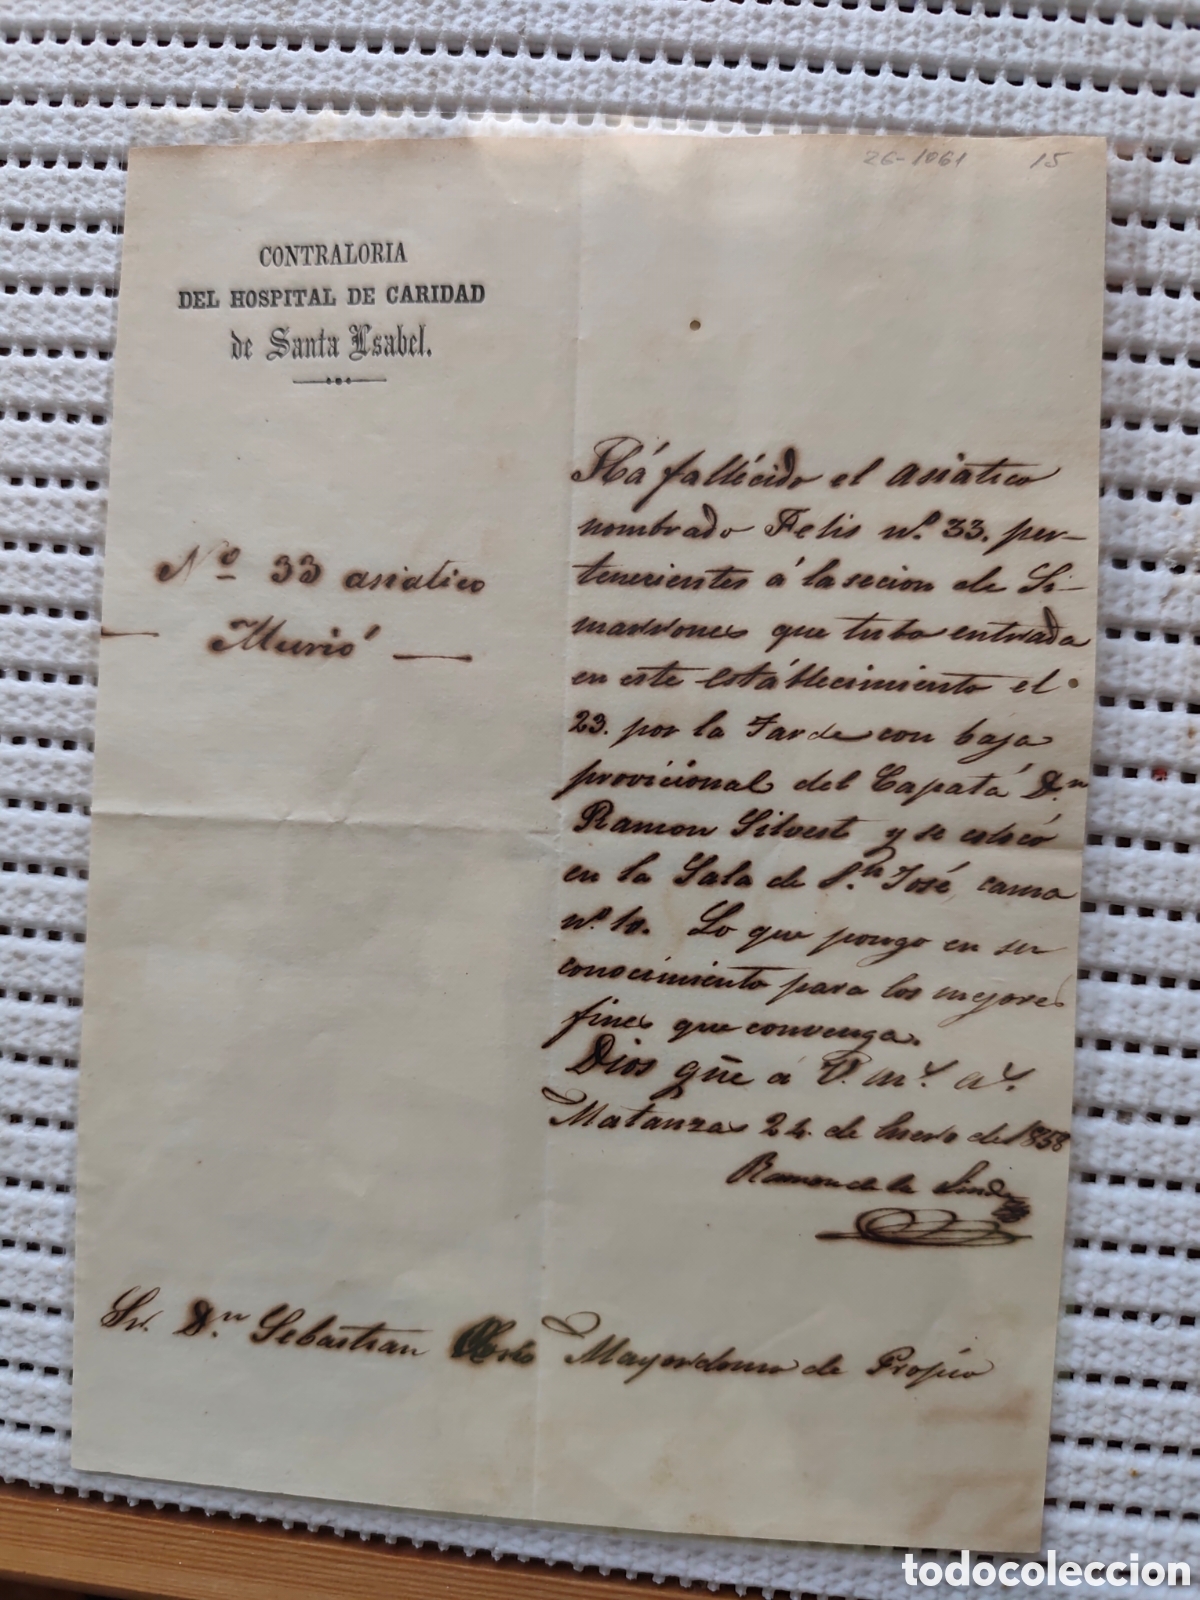 26-1061 15
CONTRALORIA
DEL HOSPITAL DE CARIDAD
de Santa Ysabel.
Nº 33 asiatico
Murió
Há fallécido el asiatico
nombrado Felis nº. 33. per-
tenecientes á la secion de Si-
marrones que tubo entrada
en este establlecimiento el
23. por la Tarde con baja
provicional del Capatá Dn
Ramon Silvest y se colocó
en la Sala de Sn José, cama
nº. 10. Lo que pongo en su
conocimiento para los mejores
fines que convenga.
Dios güe á V. ms. as.
Matanzas 24. de Enero de 1858
Ramon de la
Sr. Dn Sebastian Mayordomo de Propio
todocoleccion